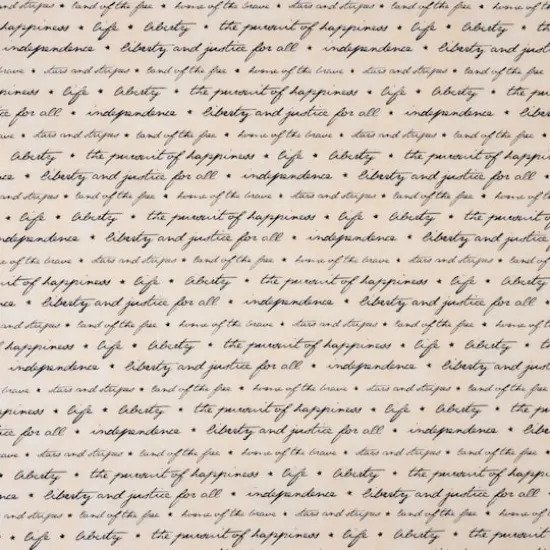 and stripes * land of the free * home of the brave * stars and stripes * land of the free * home of the
happiness * life * liberty * the pursuit of happiness * life * liberty * th
independence * liberty and justice for all * independence * liberty and justi
brave * stars and stripes * land of the free * home of the brave * stars and stripes * land of the free
piness * life * liberty * the pursuit of happiness * life * liberty * the pu
ce for all * independence * liberty and justice for all * independence * liber
ave * stars and stripes * land of the free * home of the brave * stars and stripes * land of the free *
liberty * the pursuit of happiness * life * liberty * the pursuit of happin
ce * liberty and justice for all * independence * liberty and justice for all *
and stripes * land of the free * home of the brave * stars and stripes * land of the free * home of the
* life * liberty * the pursuit of happiness * life * liberty * the pursuit o
ndependence * liberty and justice for all * independence * liberty and justice
of the brave * stars and stripes * land of the free * home of the brave * stars and stripes * land of the
uit of happiness * life * liberty * the pursuit of happiness * life * liberty
ce * liberty and justice for all * independence * liberty and justice for all *
and stripes * land of the free * home of the brave * stars and stripes * land of the free * home of the
happiness * life * liberty * the pursuit of happiness * life * liberty * th
independence * liberty and justice for all * independence * liberty and just
brave * stars and stripes * land of the free * home of the brave * stars and stripes * land of the free
ppiness * life * liberty * the pursuit of happiness * life * liberty * the pu
ice for all * independence * liberty and justice for all * independence * liber
ave * stars and stripes * land of the free * home of the brave * stars and stripes * land of the free *
liberty * the pursuit of happiness * life * liberty * the pursuit of happi
nce * liberty and justice for all * independence * liberty and justice for all
and stripes * land of the free * home of the brave * stars and stripes * land of the free * home of the
* life * liberty * the pursuit of happiness * life * liberty * the pursuit